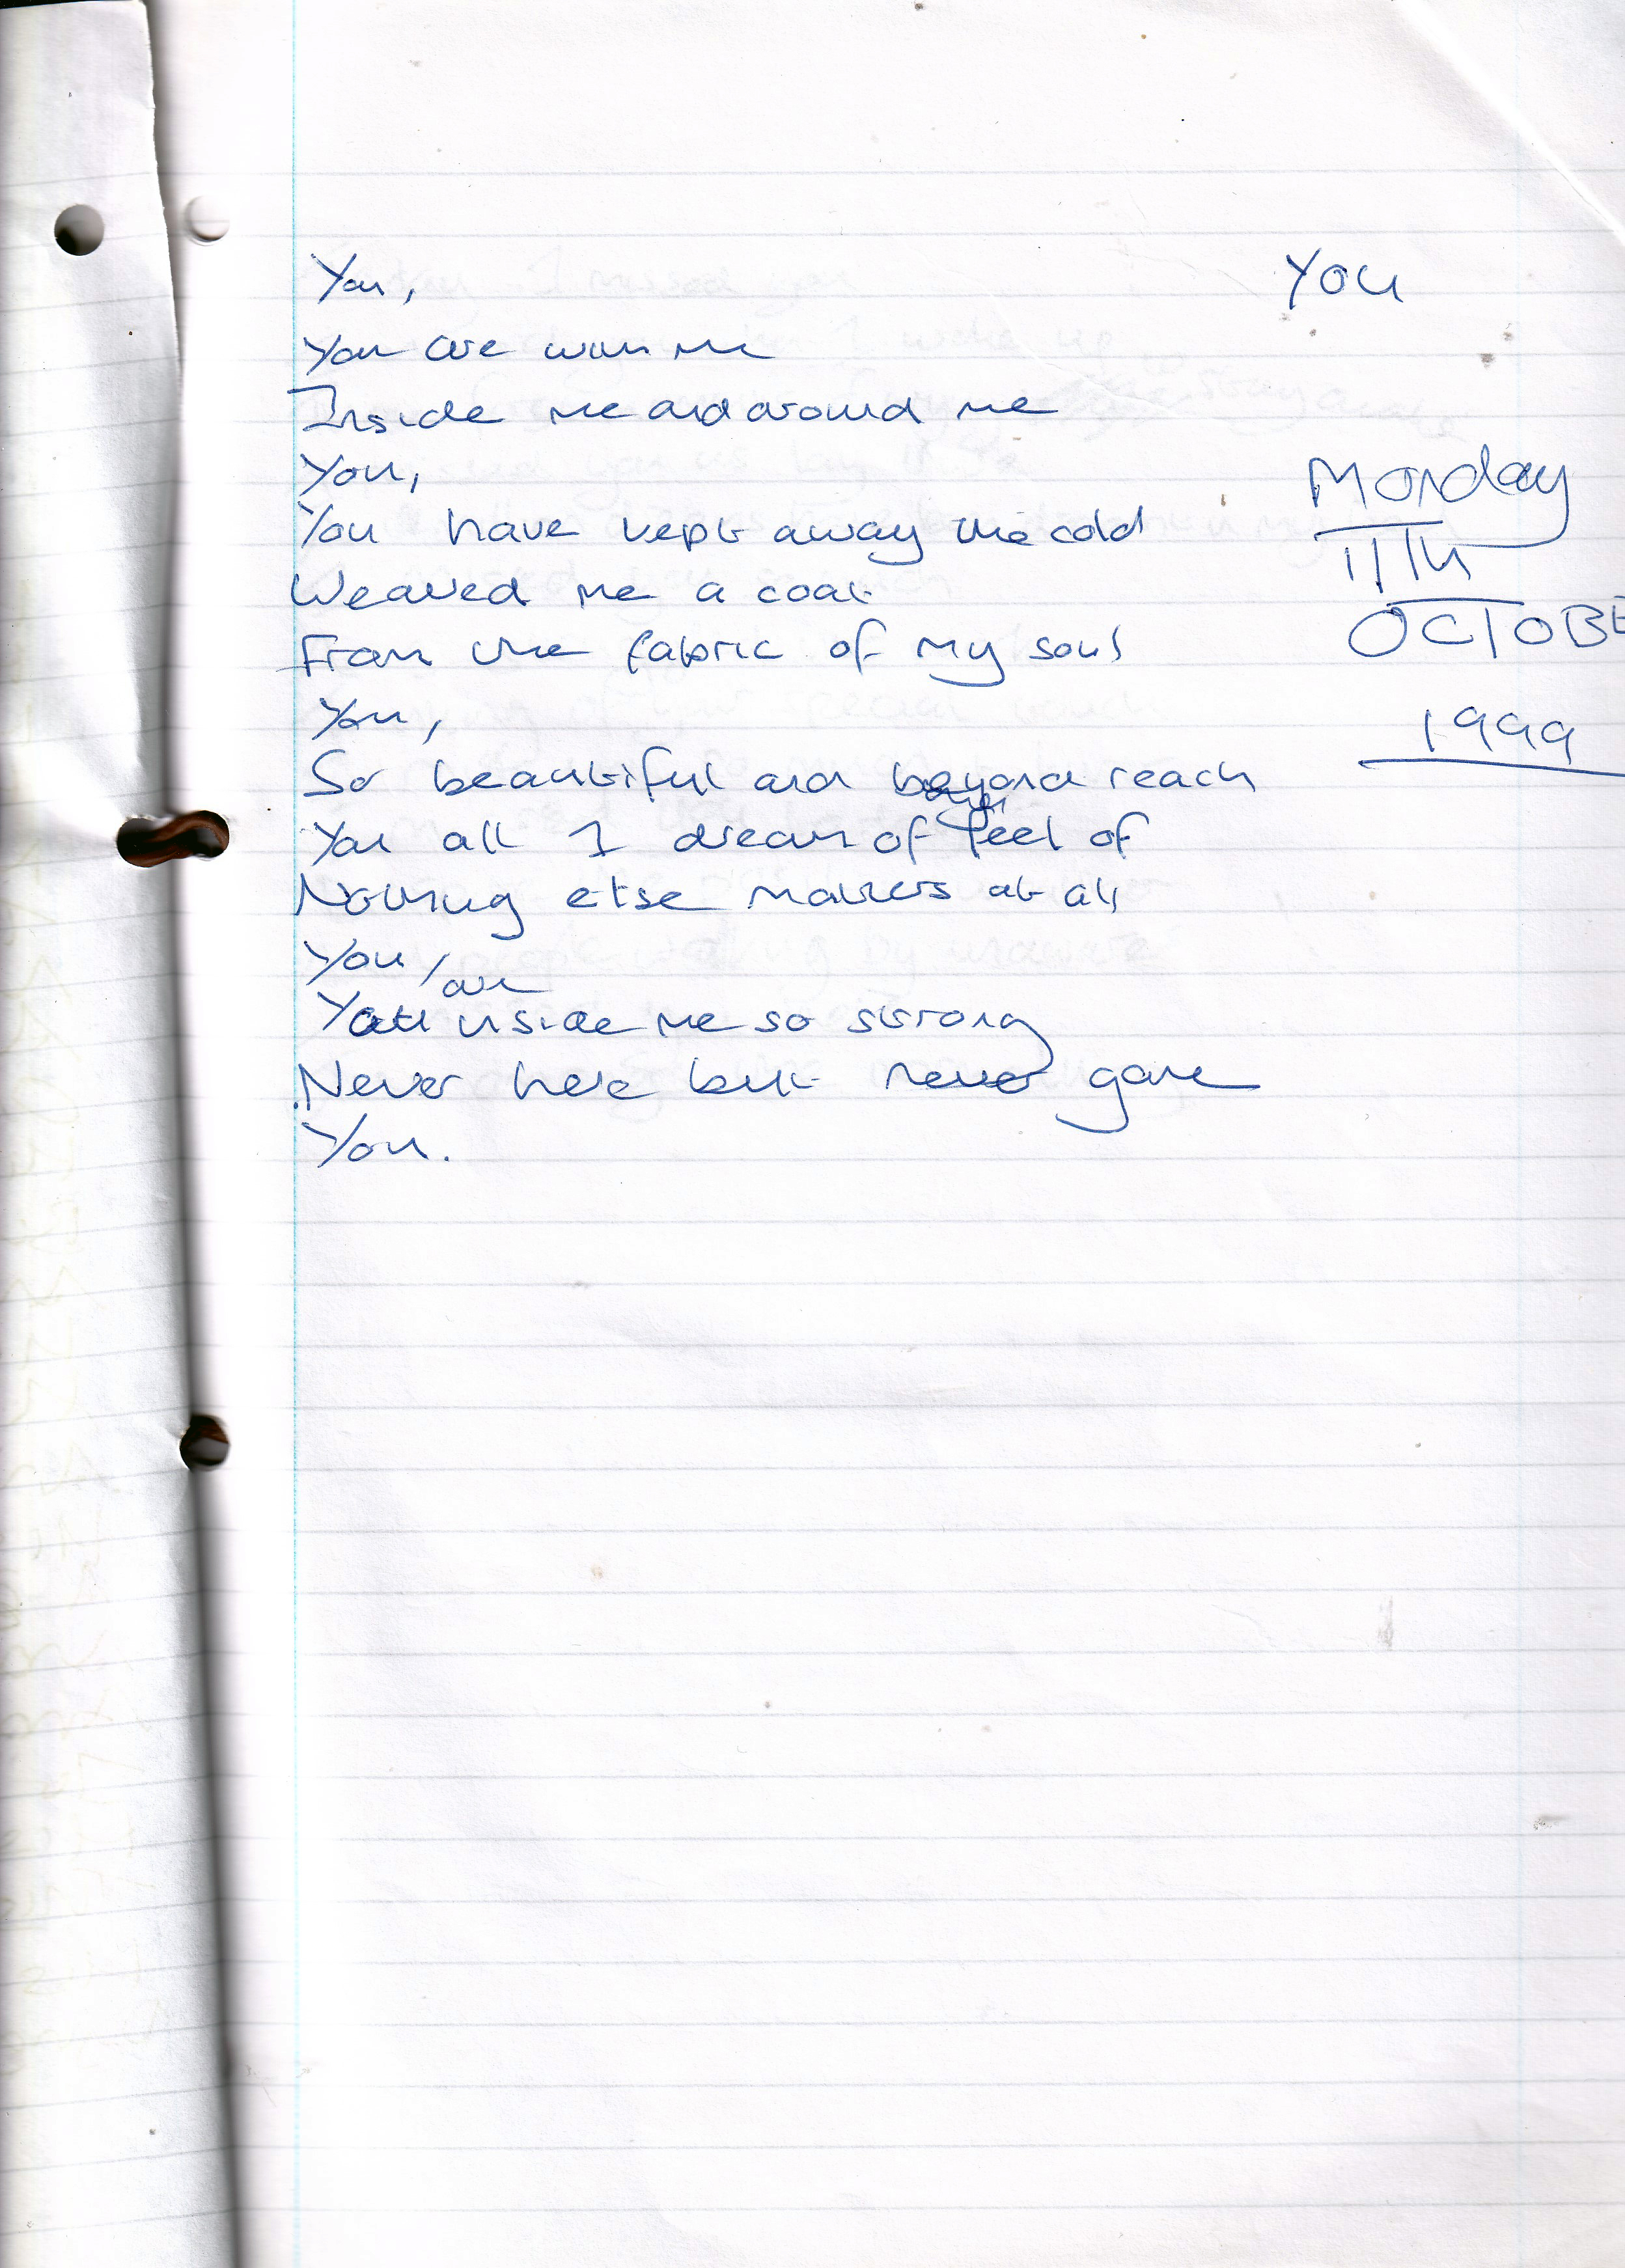 You
You,
You are with me
Inside me and around me
You,
You have kept away the cold
Weaved me a coat
From the fabric of my soul
You,
So beautiful and beyond reach
You all I dream of feel of
Nothing else matters at all
You,
are
You inside me so strong
Never here but never gone
You.
Monday
11TH
OCTOBE
1999